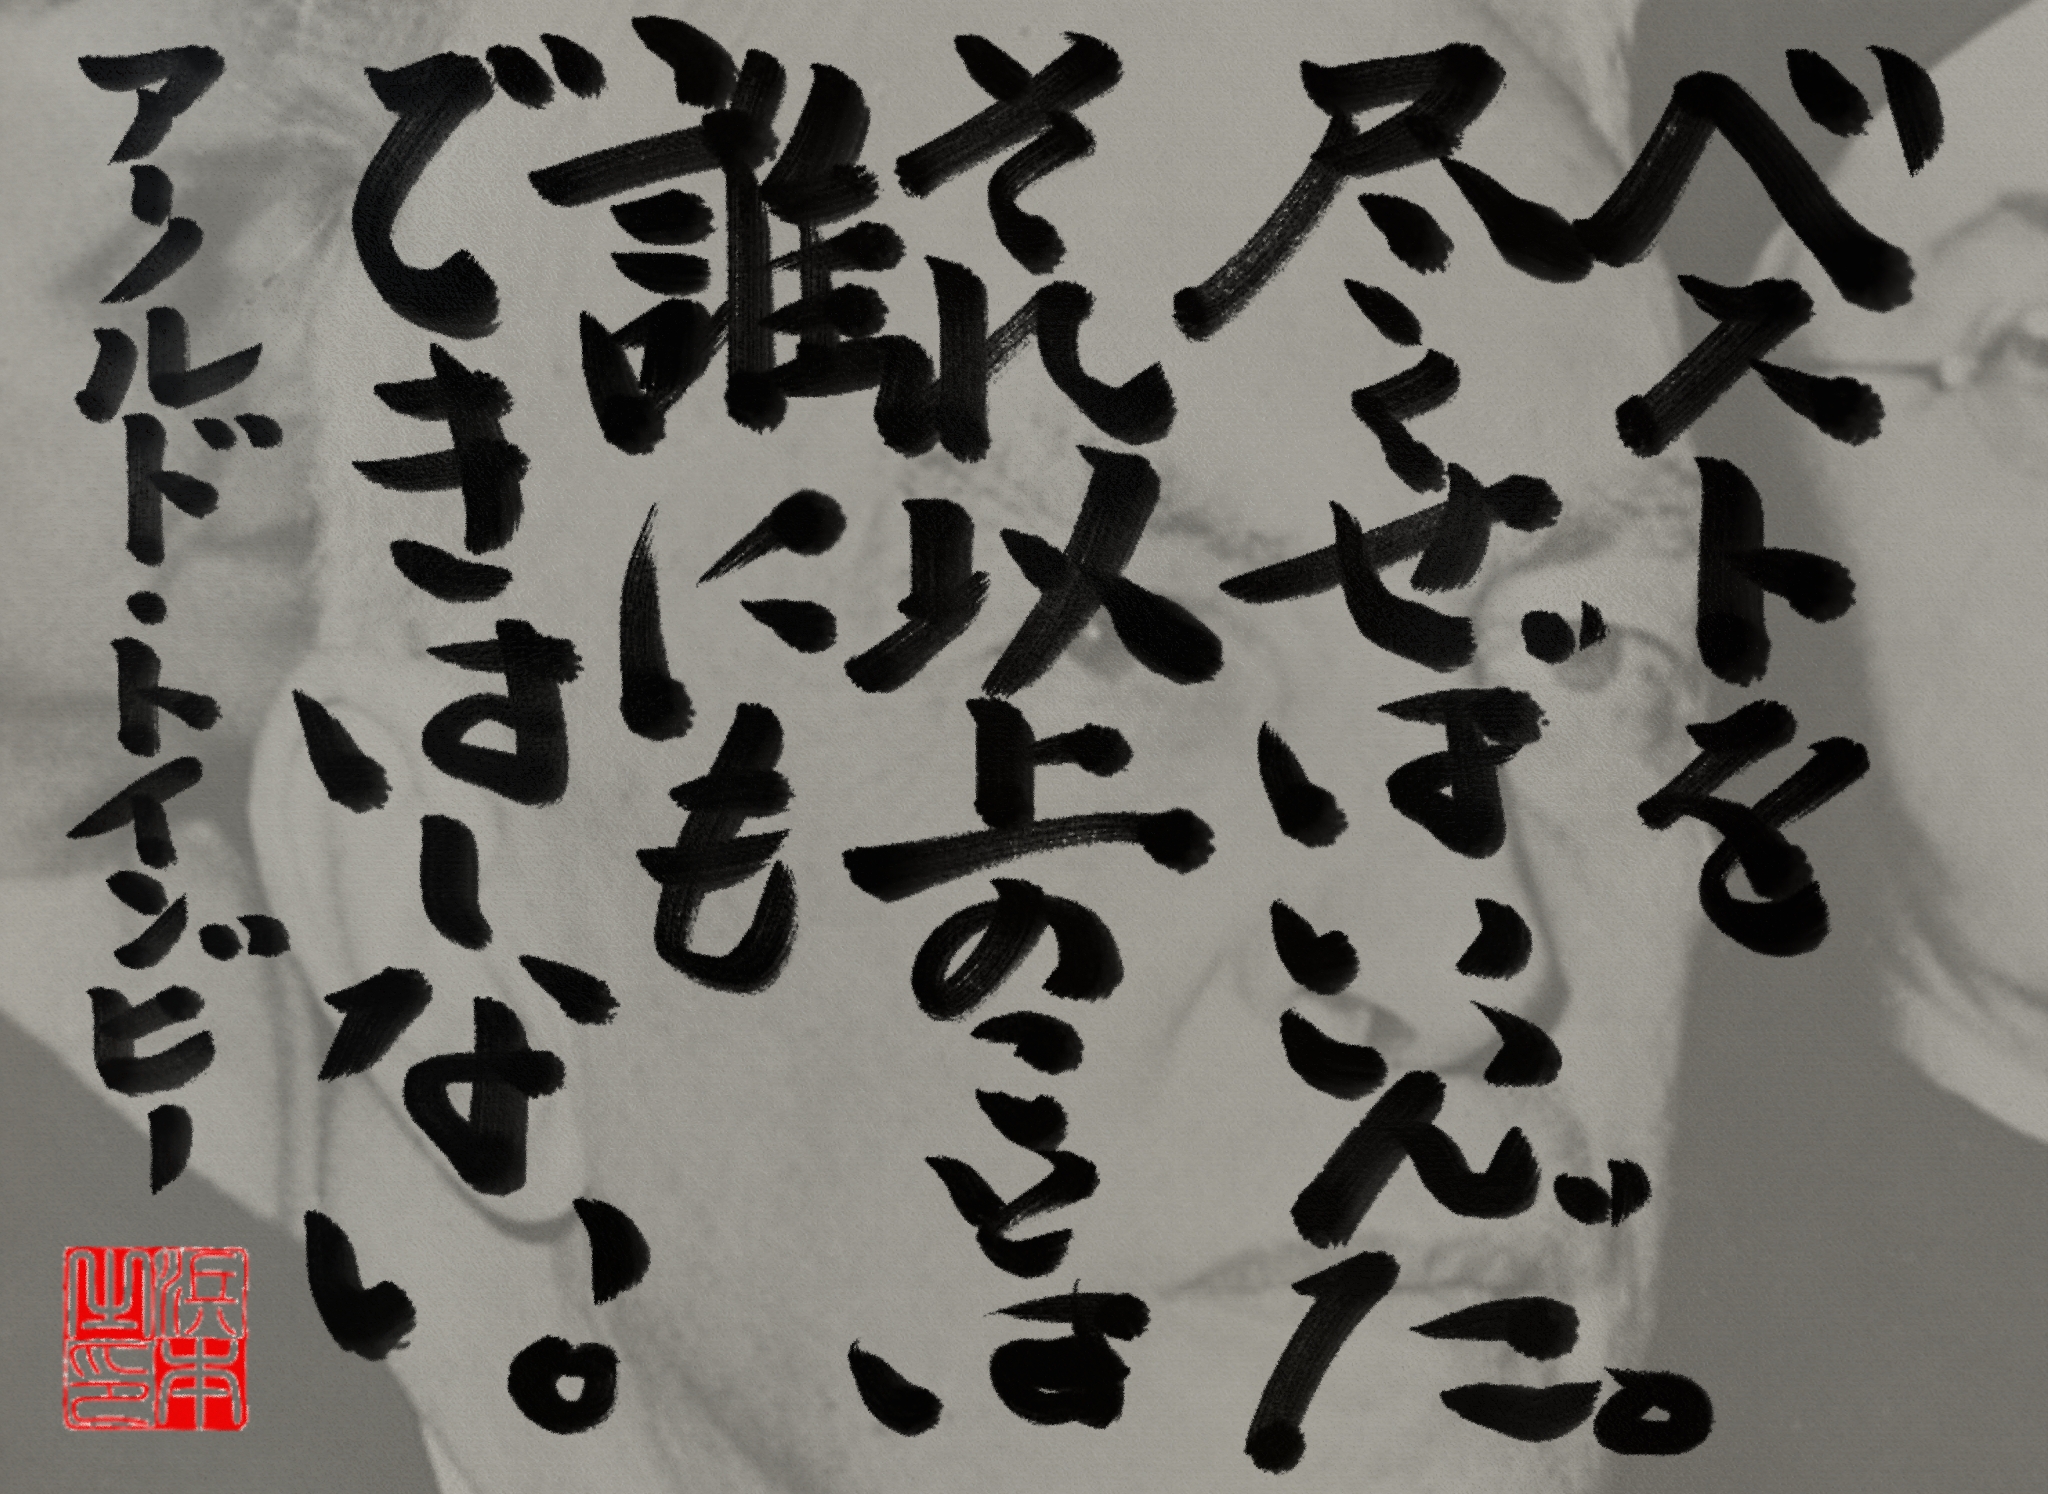 ベストを
尽くせばいいんだ。
それ以上のことは
誰にも
できはしない。
アーノルド・トインビー
浜本之印